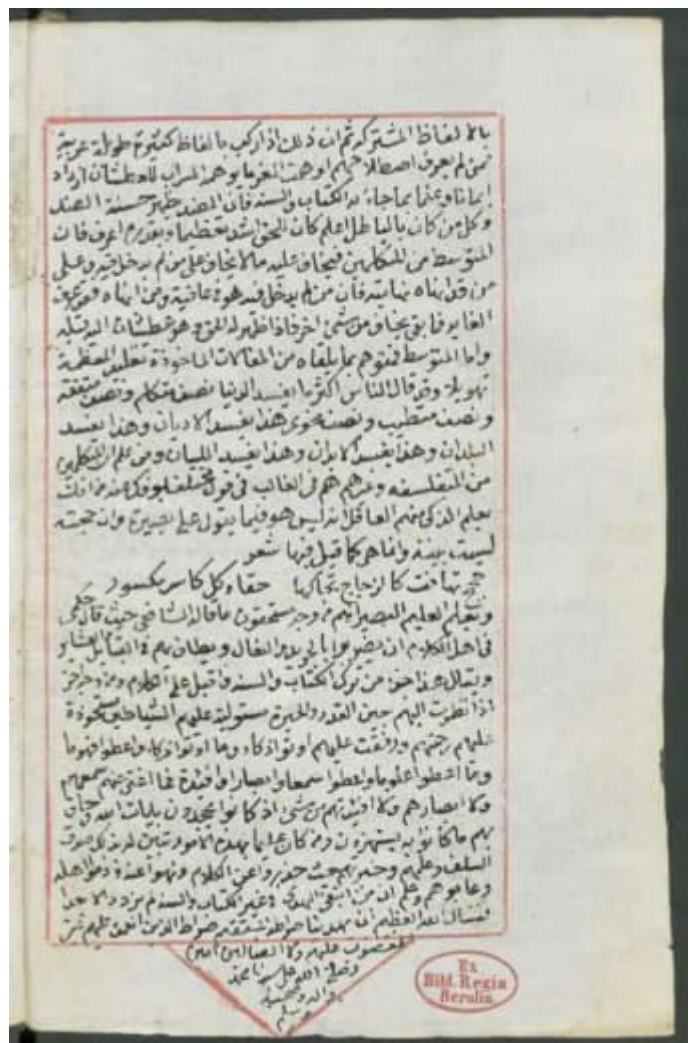 بالالفاظ المشتركة ثم ان ذلك اذا ركب بالفاظ كثيرة طويلة غريبة
فمن لم يعرف اصطلاحهم اوهمت الغر ما يوهمه السراب للعطشان ازداد
ايمانا وعلما بما جاء به الكتاب والسنة فان الضد يظهر حسنه الضد
وكل من كان بالباطل اعلم كان للحق اشد تعظيما وبقدره اعرف فان
المتوسط من المتكلمين فيخاف عليه مالا يخاف على من لم يدخل فيه وعلى
من قد انهاه نهايته فان من لم يدخل فيه هو في عافية ومن انهاه فقد عرف
الغاية فما بقي يخاف من شئ اخر فاذا ظهر له الحق وهو عطشان اليه قبله
واما المتوسط فمتوهم بما يلقاه من المقالات الماخوذة تقليدا لمعظمه
تهويلة وقد قال الناس اكثر ما يفسد الدنيا نصف متكلم ونصف متفقه
ونصف متطبب ونصف نحوي هذا يفسد الاديان وهذا يفسد
البلدان وهذا يفسد الابدان وهذا يفسد اللسان ومن علم ان المتكلمين
من المتفلسفة وغيرهم هم في الغالب في قول مختلف يؤفك عنه من افك
يعلم الذكي منهم العاقل انه ليس هو فيما يقول على بصيرة وان حجته
ليست ببينة وانما هي كما قيل فيها شعر
حجج تهافت كالزجاج تخالها حقا وكل كاسر مكسور
ويعلم العليم البصير انهم من وجه مستحقون ما قاله الشافعي حيث قال حكمي
في اهل الكلام ان يضربوا بالجريد والنعال ويطاف بهم في القبايل والعشاير
ويقال هذا جزا من ترك الكتاب والسنة واقبل على الكلام ومن وجه اخر
اذا نظرت اليهم بعين القدر والحيرة مستولية عليهم والشياطين مستحوذة
عليهم رحمتهم ورفقت عليهم اوتوا ذكاء وما اوتوا زكاء واعطوا فهوما
وما اعطوا علوما واعطوا سمعا وابصارا وافئدة فما اغنى عنهم سمعهم
ولا ابصارهم ولا افئدتهم من شئ اذ كانوا يجحدون بايات الله وحاق
بهم ما كانوا به يستهزون ومن كان عالما بهذه الامور تبين له بذلك حذق
السلف وعلمهم وخبرتهم حيث حذروا عن الكلام ونهوا عنه وذموا اهله
وعابوهم وعلم ان من ابتغى الهدى في غير الكتاب والسنة لم يزدد الا بعدا
فنسال الله العظيم ان يهدينا صراطه المستقيم صراط الذين انعمت عليهم غير
المغضوب عليهم ولا الضالين امين
وصلى الله على سيدنا محمد
واله وصحبه
وسلم
Ex
Bibl. Regia
Berolin.